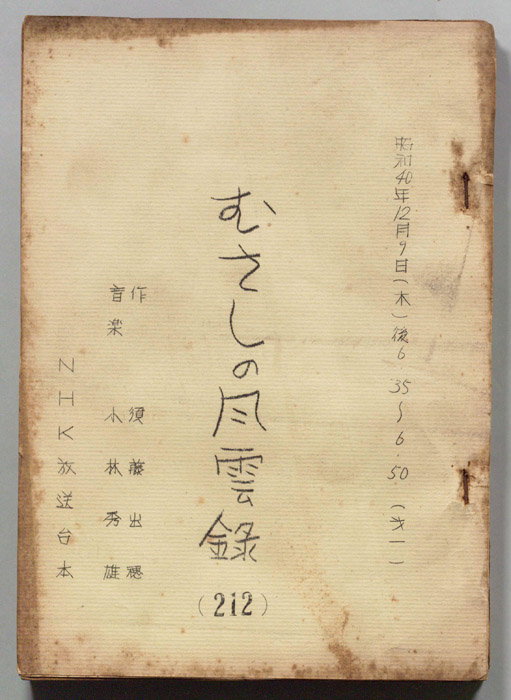 昭和40年12月9日(木)後6.35〜6.50(才一)
むさしの风雲録
(212)
作 須藤出穂
音楽 小林秀雄
NHK放送台本